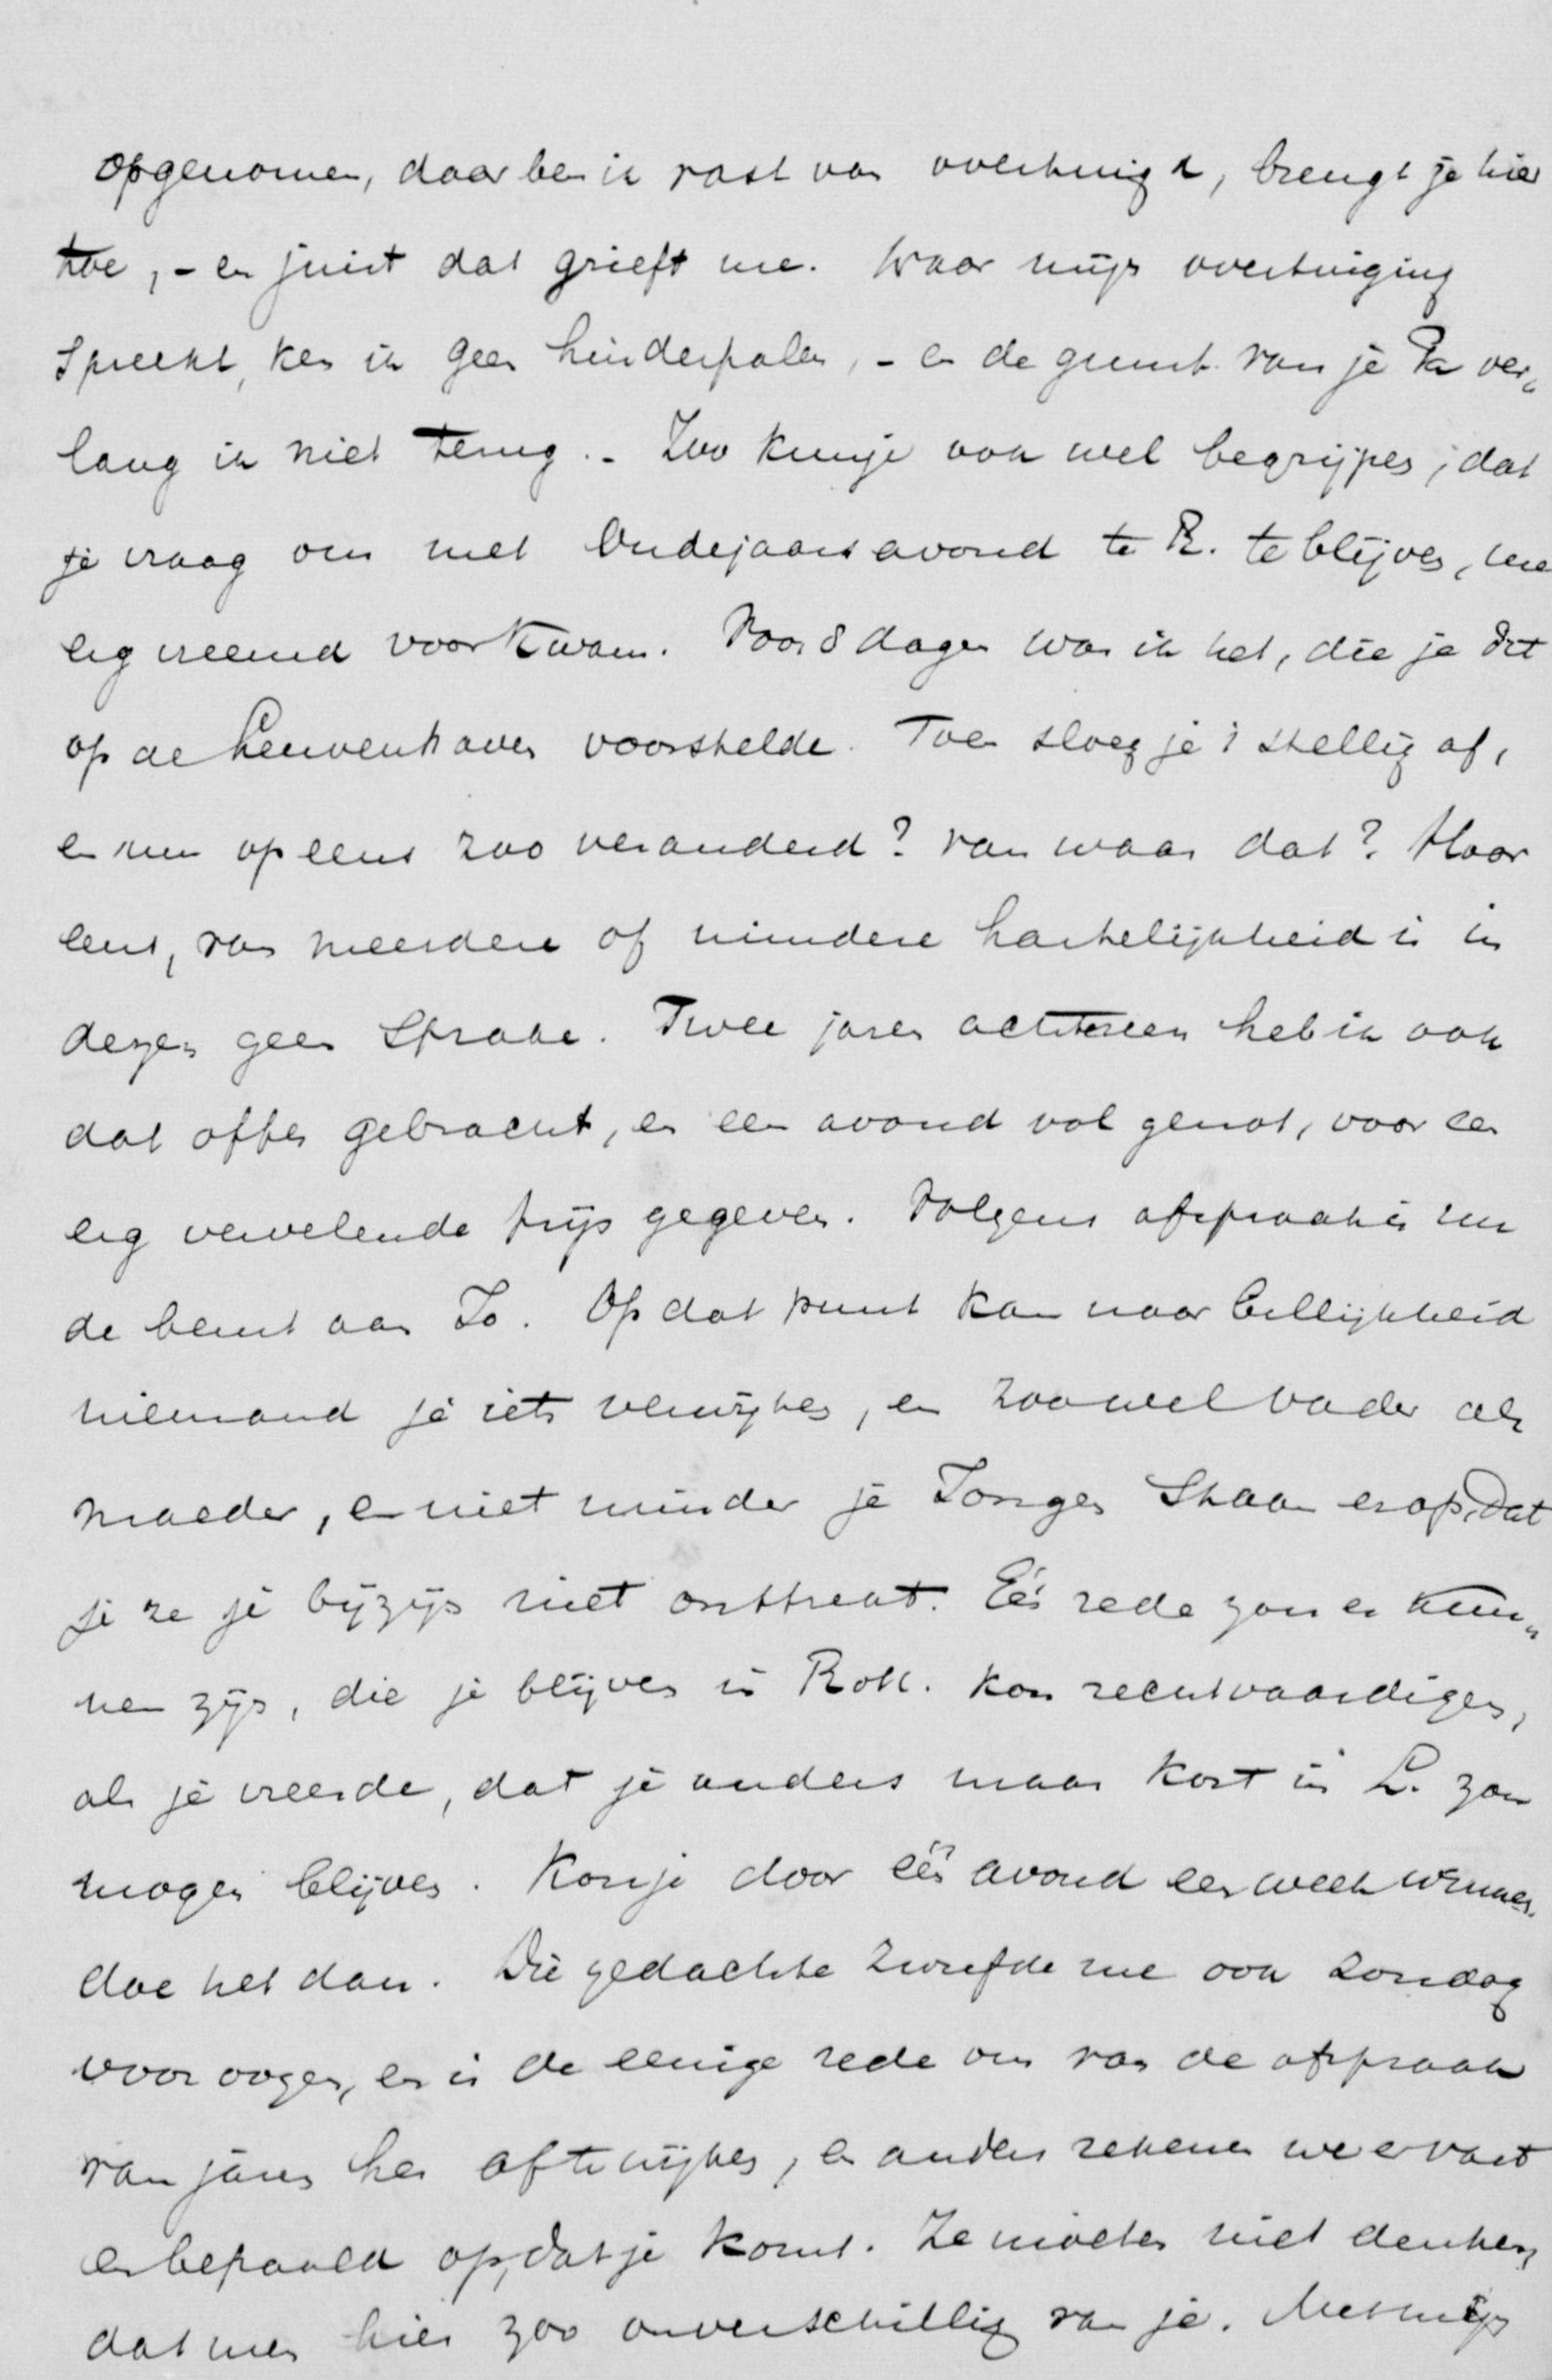 opgenomen, daar ben ik vast van overtuigd, brengt je hier
toe, - en juist dat grieft me. Waar mijn overtuiging
spreekt, ken ik geen hinderpalen, - en de gunst van je Pa ver„
lang ik niet terug. - Zoo kun je ook wel begrijpen, dat
je vraag om met Oudejaarsavond te R. te blijven, me
erg vreemd voorkwam. Voor 8 dagen was ik het, die je dit
op de Leuvenhaven voorstelde. Toen sloeg je 't stellig af,
en nu opeens zoo veranderd? van waar dat? Hoor
eens, van meerdere of mindere hartelijkheid is in
dezen geen sprake. Twee jaren achtereen heb ik ook
dat offer gebracht, en een avond vol genot, voor een
erg vervelende prijs gegeven. Volgens afspraak is nu
de beurt aan Jo. Op dat punt kan naar billijkheid
niemand je iets verwijten, en zoowel vader als
moeder, en niet minder je Jongen staan erop, dat
je ze je bijzijn niet onttrekt. Eén rede zou er kun„
nen zijn, die je blijven in Rott. kon rechtvaardigen,
als je vreesde, dat je anders maar kort in L. zou
mogen blijven. Kon je door één avond een week winnen,
doe het dan. Die gedachte zweefde me ook Zondag
voor oogen, en is de eenige rede om van de afspraak
van jaren her af te wijken, en anders rekenen we er vast
en bepaald op, dat je komt. Ze moeten niet denken,
dat men hier zoo onverschillig van je. Met mijn